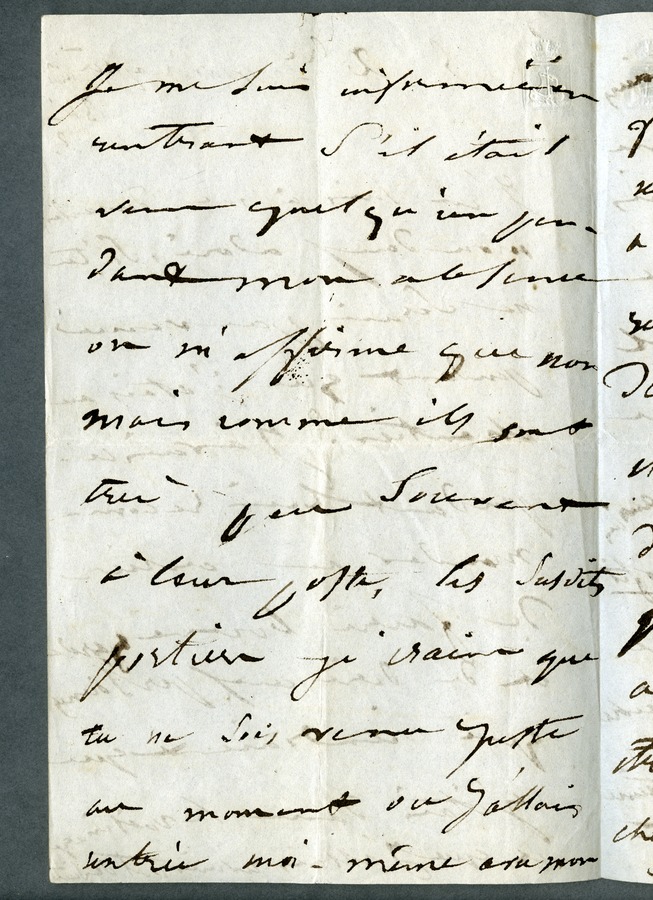 Je me suis informée en
rentrant s'il était
venu quelqu'un pen-
dant mon absence
on m'affirme que non
mais comme ils sont
très peu souvent
à leur poste, les susdits
portiers je crains que
tu ne sois venu juste
au moment ou j'allais
rentrée moi-même